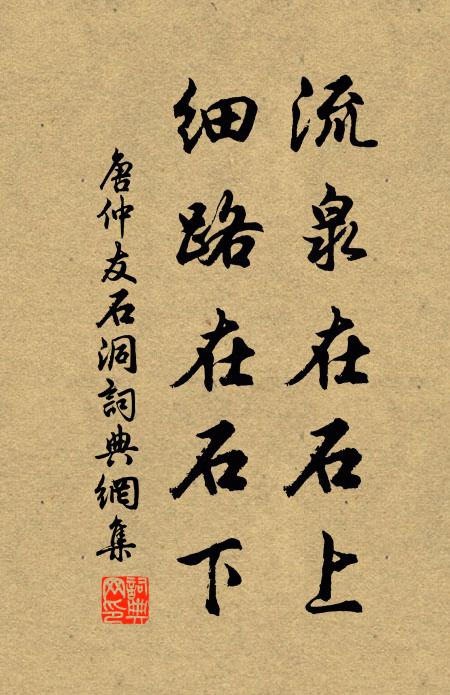 流泉在石上
细路在石下
唐仲友石洞詞典網集
詞典網印